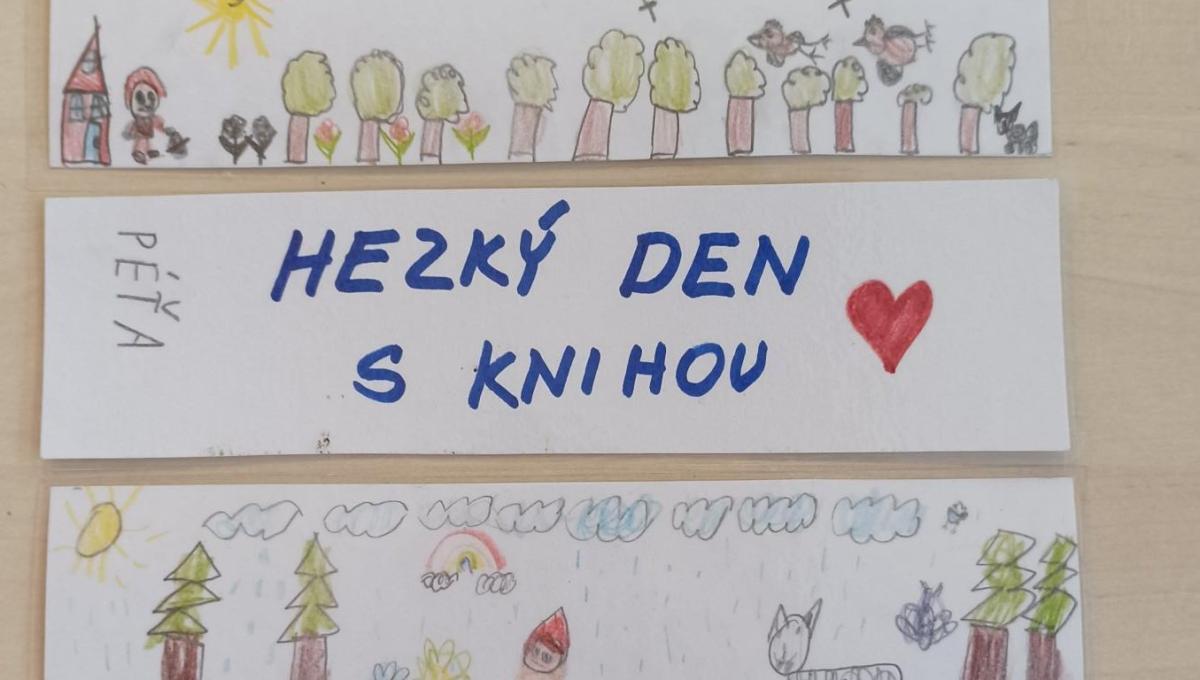 PÉŤA
HEZKÝ DEN
S KNIHOU